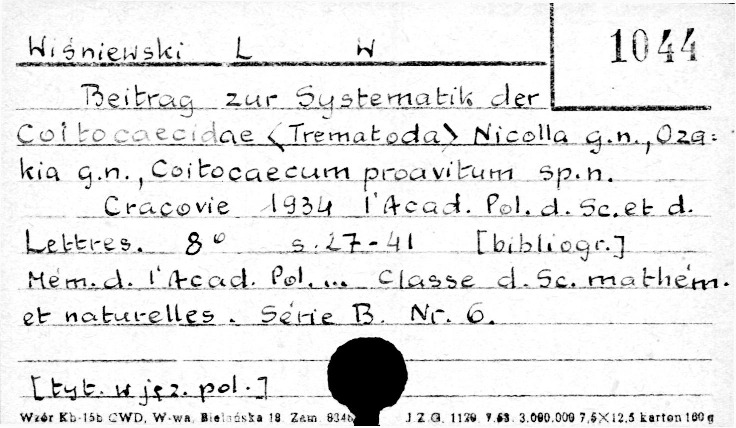 Wiśniewski L W
1044
Beitrag zur Systematik der
Coitocaecidae <Trematoda> Nicolla g.n., Oza=
kia g.n., Coitocaecum proavitum sp.n.
Cracovie 1934 l'Acad. Pol. d. Sc. et d.
Lettres. 8° s. 27-41 [bibliogr.]
Mém. d. l'Acad. Pol. ... Classe d. Sc. mathém.
et naturelles. Série B. Nr. 6.
[tyt. w jęz. pol.]
Wzór Kb-15b CWD, W-wa, Bielańska 18. Zam. J.Z.G. 1129. 7.63. 3.000.000 7,5×12,5 karton 160 g